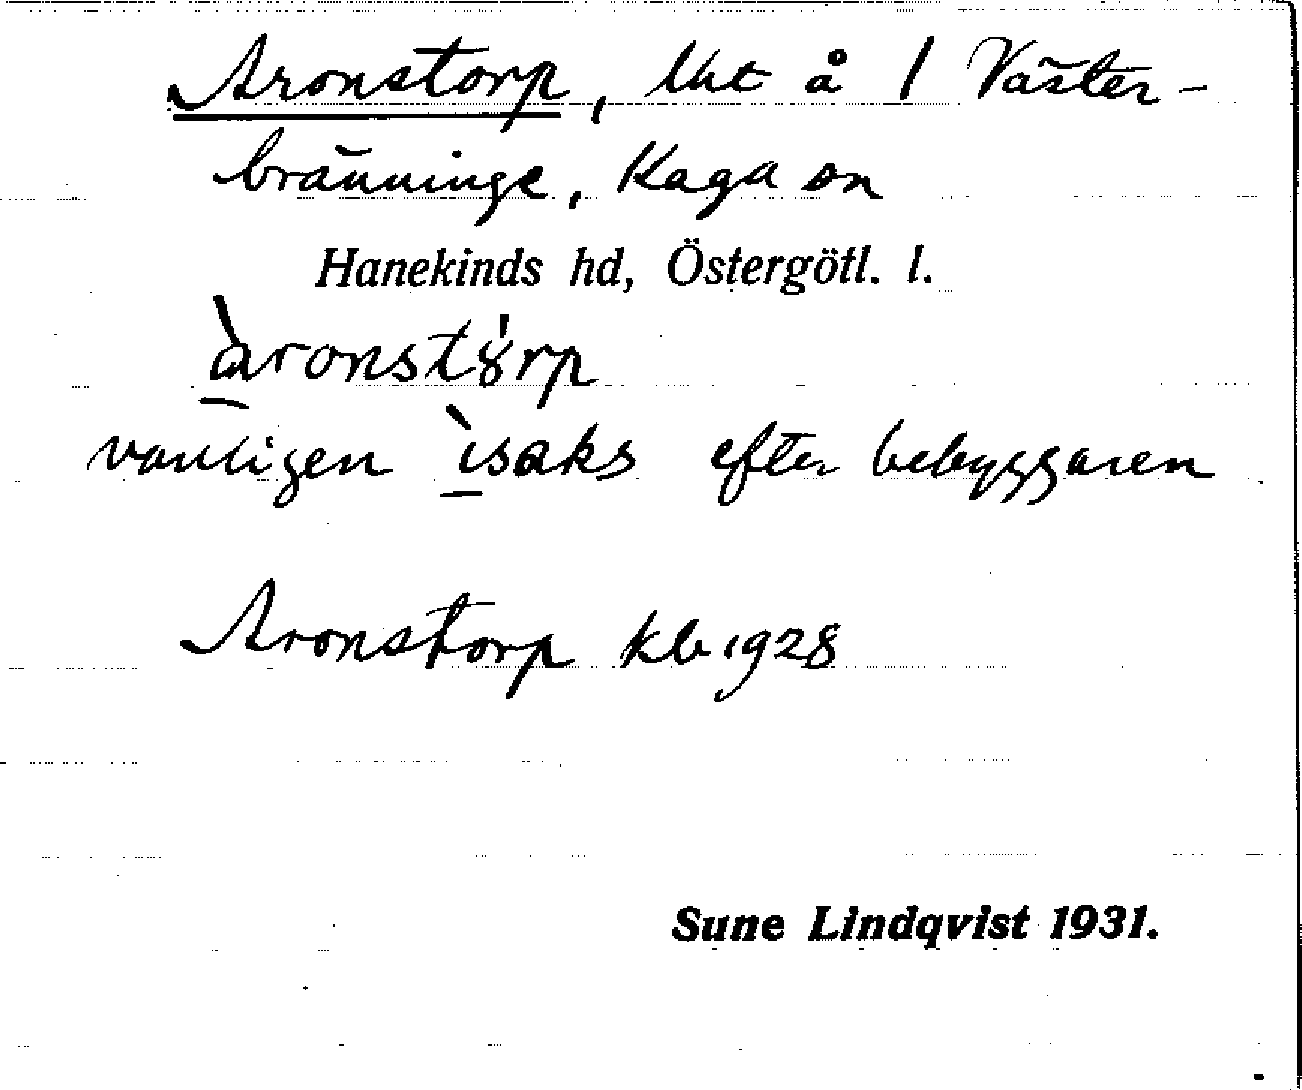 Aronstorp, lht å 1 Väster-
bränninge, Kaga sn
Hanekinds hd, Östergötl. l.
àronstȣ́rp
vanligen ìsaks efter bebyggaren
Aronstorp kb 1928
Sune Lindqvist 1931.